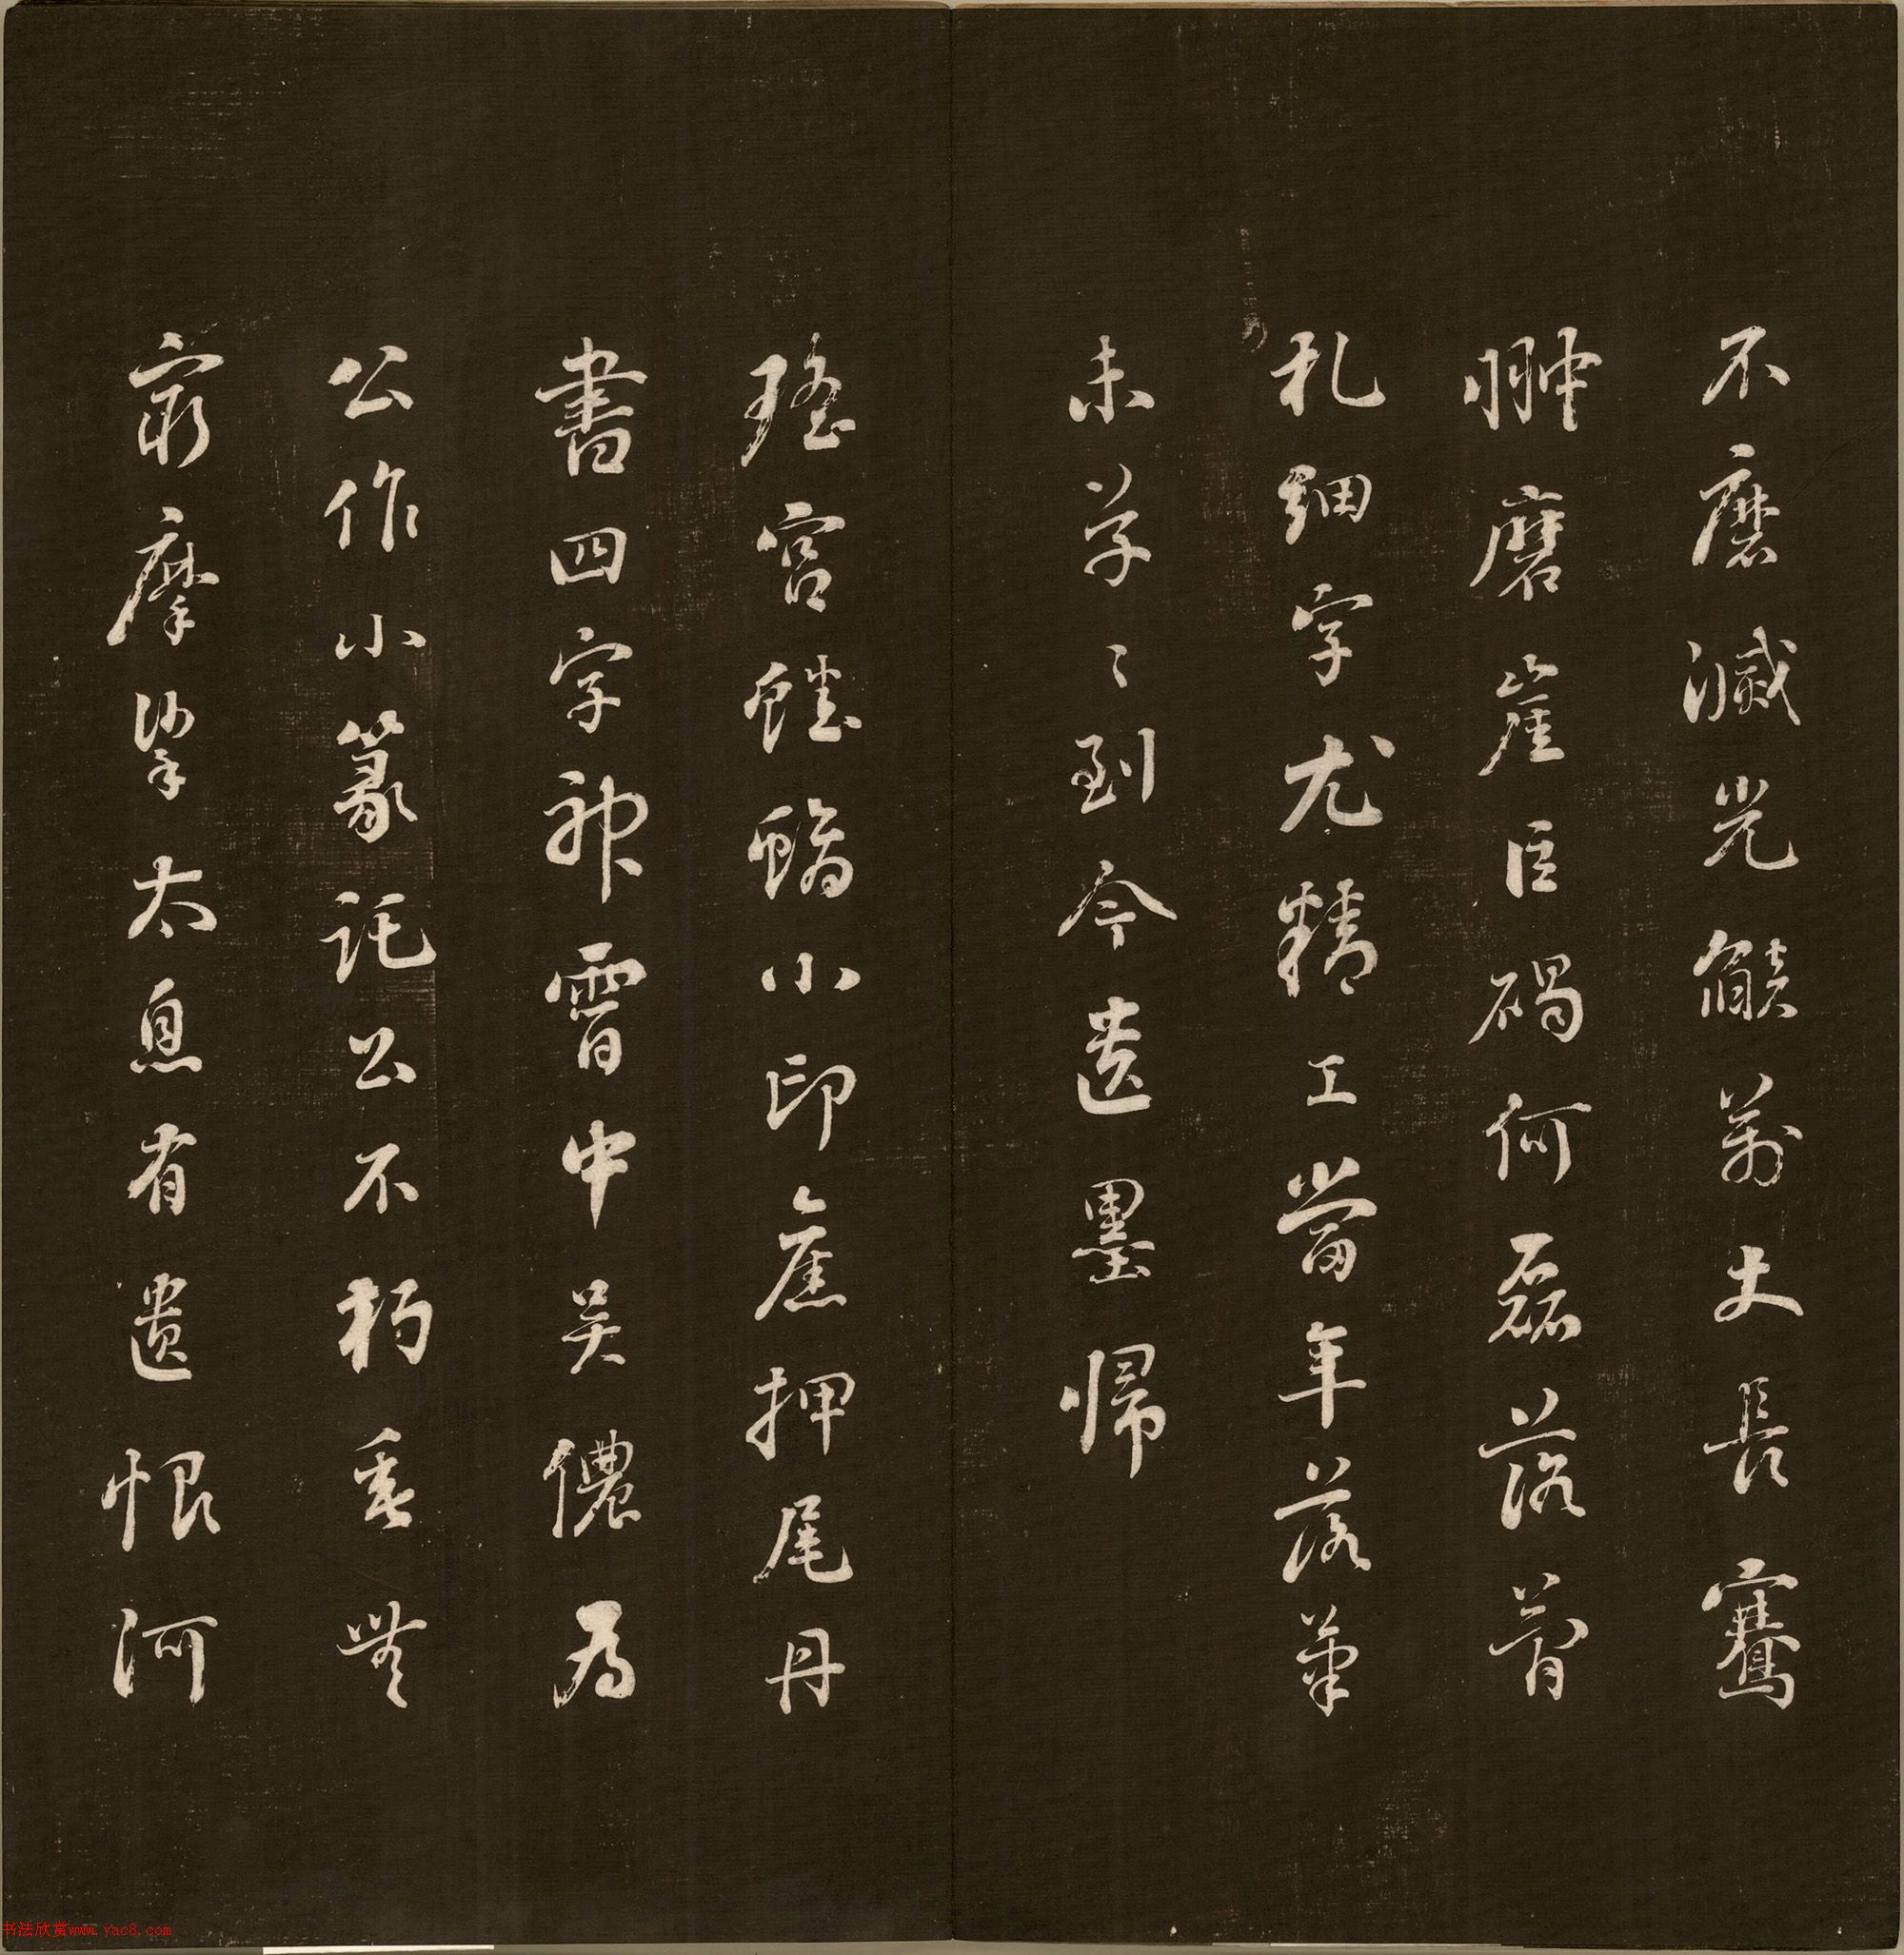 不磨滅光餤萬丈長騫
翀磨崖巨碣何磊落片
札細字尤精工當年落筆
未草〻到今遺墨歸
瑤宮蟠螭小印舊押尾丹
書四字神霄中吴儂為
公作小篆託公不朽垂無
窮摩挲太息有遺恨河
书法欣赏www.yac8.com